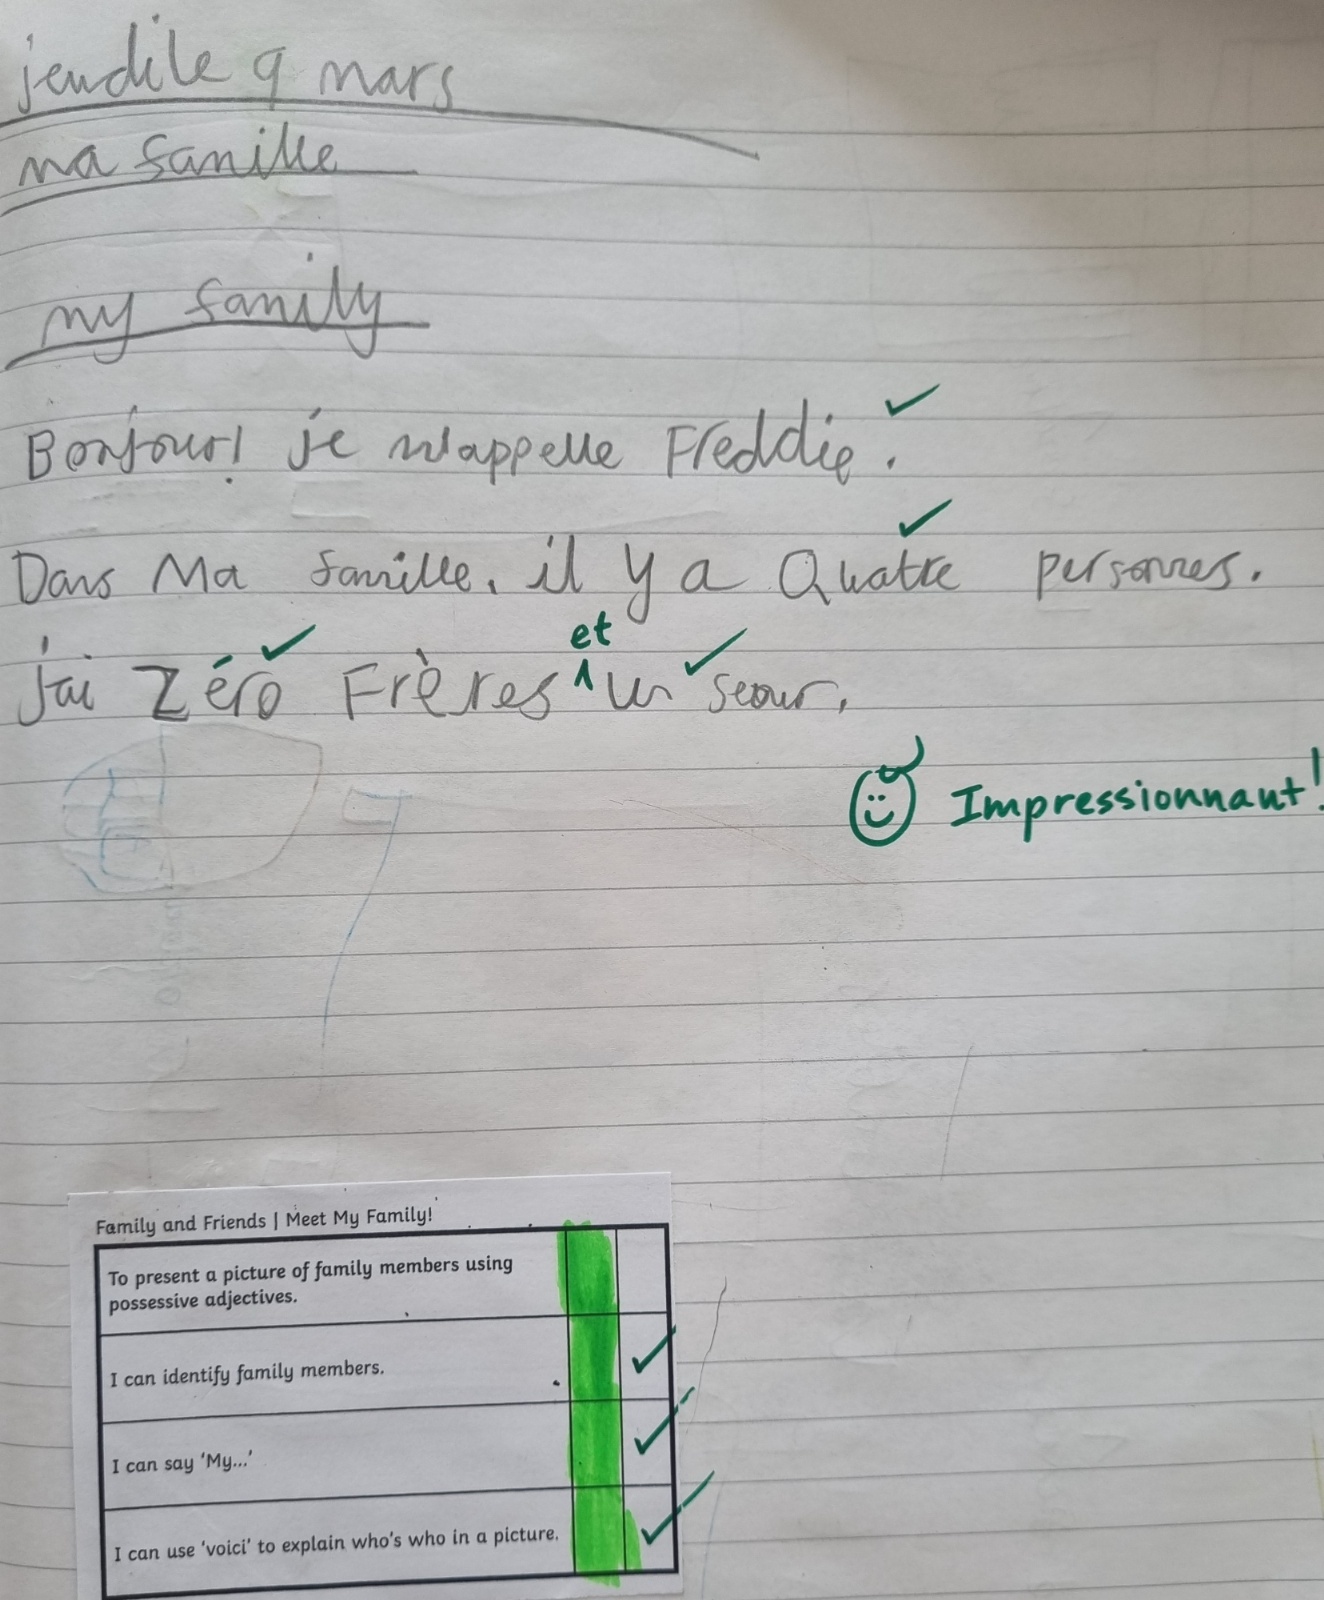 jeudi le 9 mars
ma famille
my family
Bonjour! je m'appelle Freddie.
Dans Ma famille, il y a Quatre personnes.
j'ai Zéro Frères et un seour.
Impressionnant!
Family and Friends | Meet My Family!
To present a picture of family members using
possessive adjectives.
I can identify family members.
I can say 'My...'
I can use 'voici' to explain who's who in a picture.